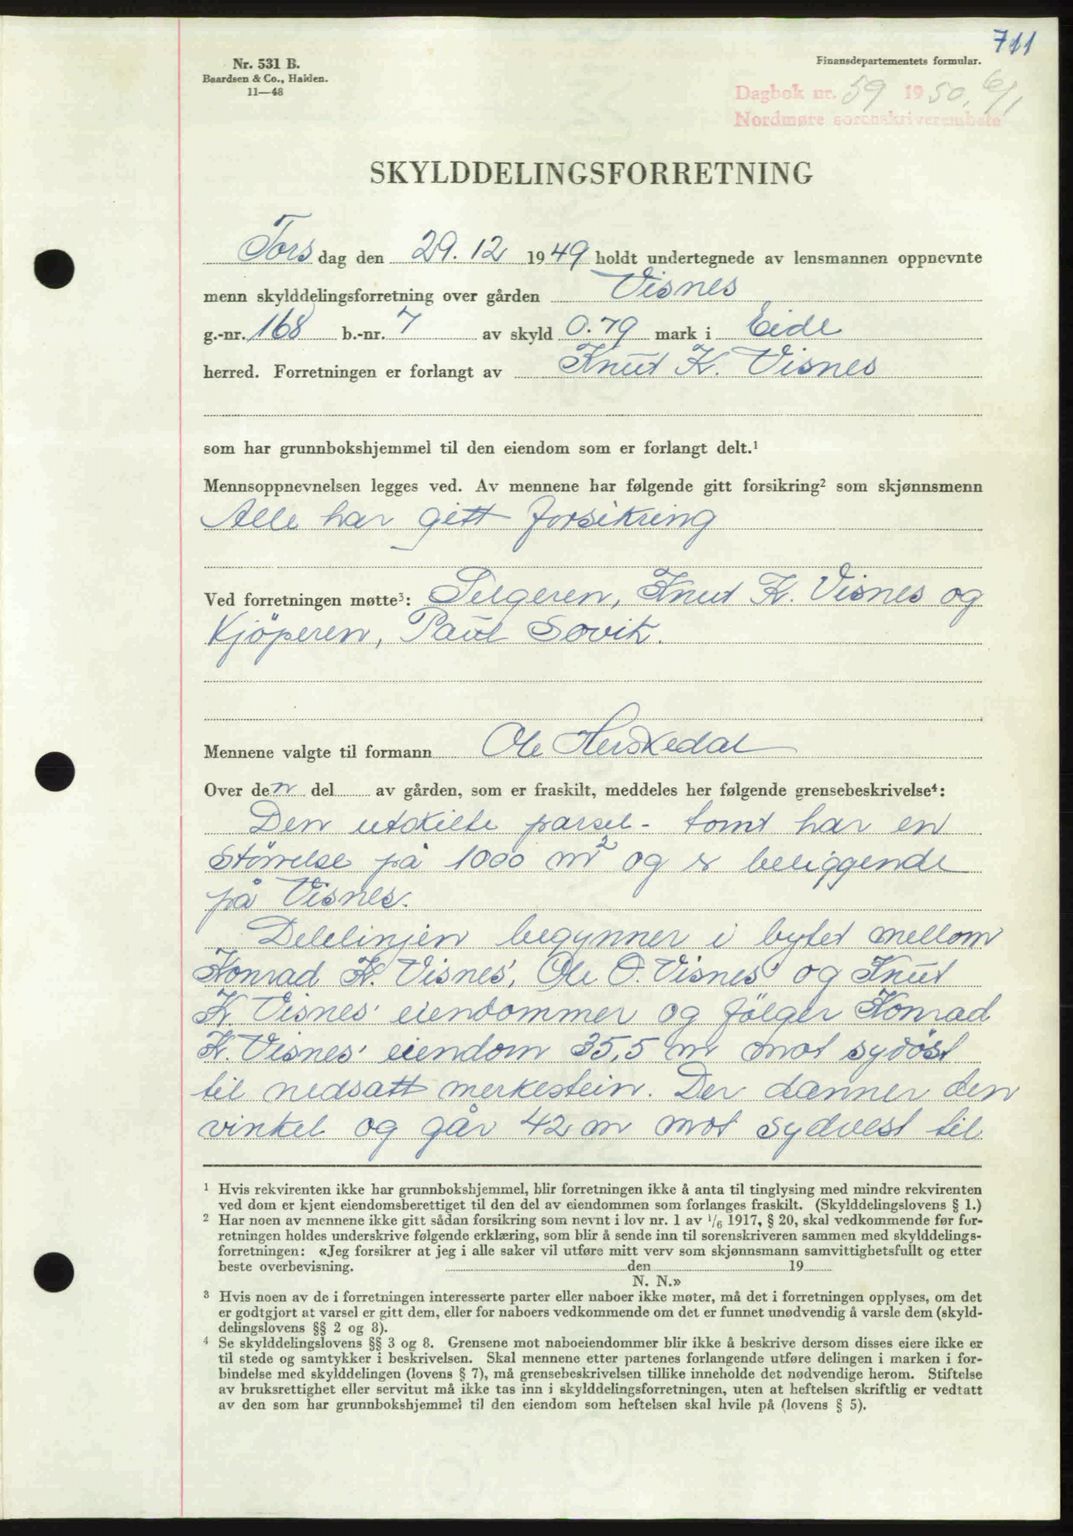 711
Nr. 531 B.
Baardsen & Co., Halden.
11—48
Finansdepartementets formular.
Dagbok nr. 59 1950, 6/1
Nordmøre sorenskriverembete
SKYLDDELINGSFORRETNING
Tors dag den 29.12 1949 holdt undertegnede av lensmannen oppnevnte
menn skylddelingsforretning over gården Visnes
g.-nr. 168 b.-nr. 7 av skyld 0.79 mark i Eide
herred. Forretningen er forlangt av Knut K. Visnes
som har grunnbokshjemmel til den eiendom som er forlangt delt.¹
Mennsoppnevnelsen legges ved. Av mennene har følgende gitt forsikring² som skjønnsmenn
Alle har gitt forsikring
Ved forretningen møtte³: Selgeren, Knut K. Visnes og
Kjöperen, Paul Sovik.
Mennene valgte til formann Ole Herskedal
Over den del av gården, som er fraskilt, meddeles her følgende grensebeskrivelse⁴:
Den utskilte parsel - tomt har en
Störrelse på 1000 m² og er beliggende
på Visnes.
Delelinjen begynner i bytet mellom
Konrad K. Visnes', Ole O. Visnes' og Knut
K. Visnes' eiendommer og fölger Konrad
K. Visnes' eiendom 35,5 m mot sydöst
til nedsatt merkestein. Der danner den
vinkel og går 42 m mot sydvest til
¹ Hvis rekvirenten ikke har grunnbokshjemmel, blir forretningen ikke å anta til tinglysing med mindre rekvirenten
ved dom er kjent eiendomsberettiget til den del av eiendommen som forlanges fraskilt. (Skylddelingslovens § 1.)
² Har noen av mennene ikke gitt sådan forsikring som nevnt i lov nr. 1 av 1/6 1917, § 20, skal vedkommende før for-
retningen holdes underskrive følgende erklæring, som blir å sende inn til sorenskriveren sammen med skylddelings-
forretningen: «Jeg forsikrer at jeg i alle saker vil utføre mitt verv som skjønnsmann samvittighetsfullt og etter
beste overbevisning. den 19
N. N.»
³ Hvis noen av de i forretningen interesserte parter eller naboer ikke møter, må det i forretningen opplyses, om det
er godtgjort at varsel er gitt dem, eller for naboers vedkommende om det er funnet unødvendig å varsle dem (skyld-
delingslovens §§ 2 og 8).
⁴ Se skylddelingslovens §§ 3 og 8. Grensene mot naboeiendommer blir ikke å beskrive dersom disses eiere ikke er
til stede og samtykker i beskrivelsen. Skal mennene etter partenes forlangende utføre delingen i marken i for-
bindelse med skylddelingen (lovens § 7), må grensebeskrivelsen tillike inneholde det nødvendige herom. Stiftelse
av bruksrettighet eller servitut må ikke tas inn i skylddelingsforretningen, uten at heftelsen skriftlig er vedtatt
av den som har grunnbokshjemmel til den eiendom som heftelsen skal hvile på (lovens § 5).